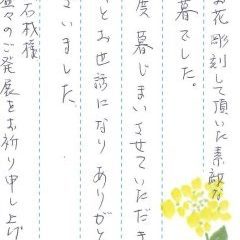 お花 彫刻して頂いた素敵な
暮でした。
度 墓じまいさせていただき
とお世話になり ありがと
ざいました。
石材様
益々のご発展をお祈り申し上げ